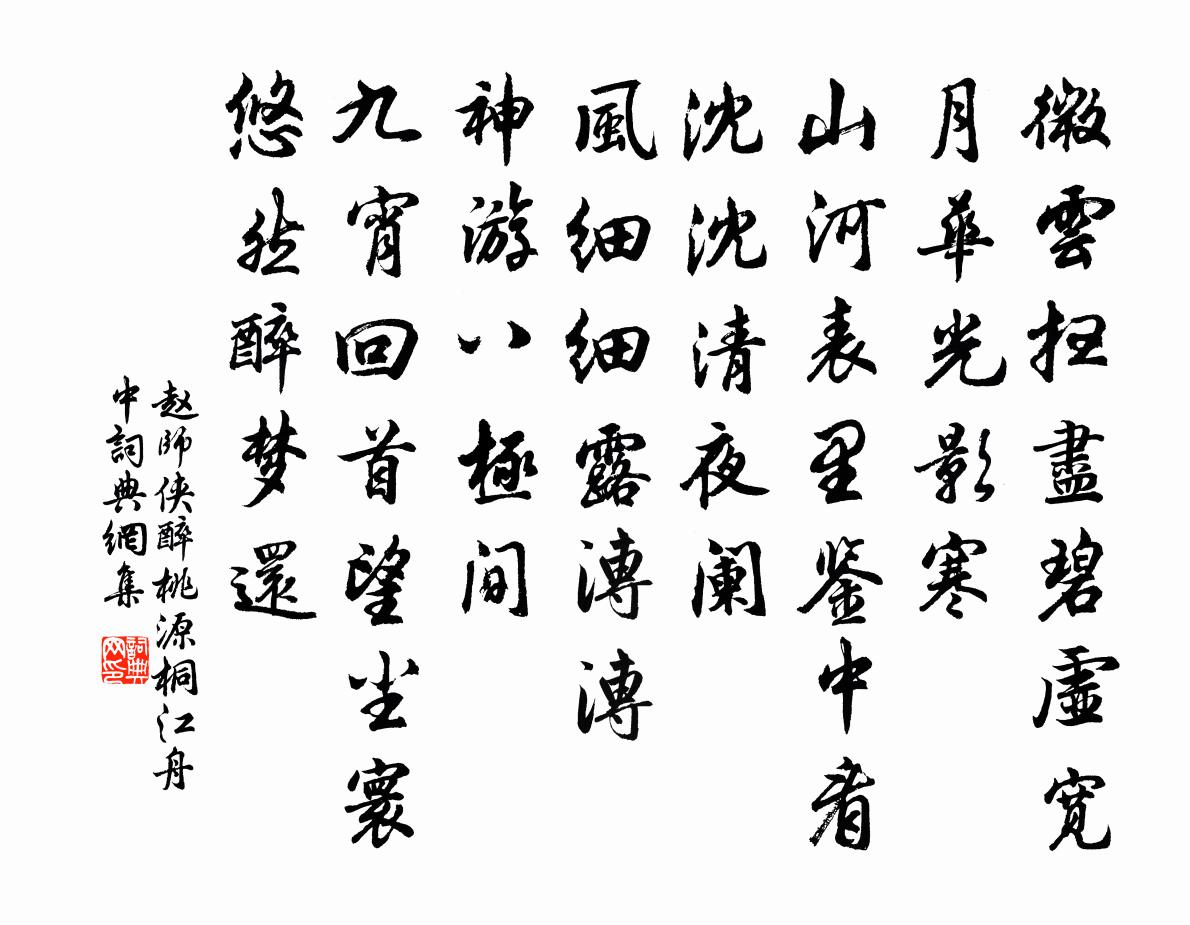 微雲扫盡碧虛宽
月華光影寒
山河表里鉴中看
沈沈清夜阑
風细细露漙漙
神游八極间
九宵回首望尘寰
悠然醉梦還
赵师侠醉桃源桐江舟
中詞典網集
詞典网印